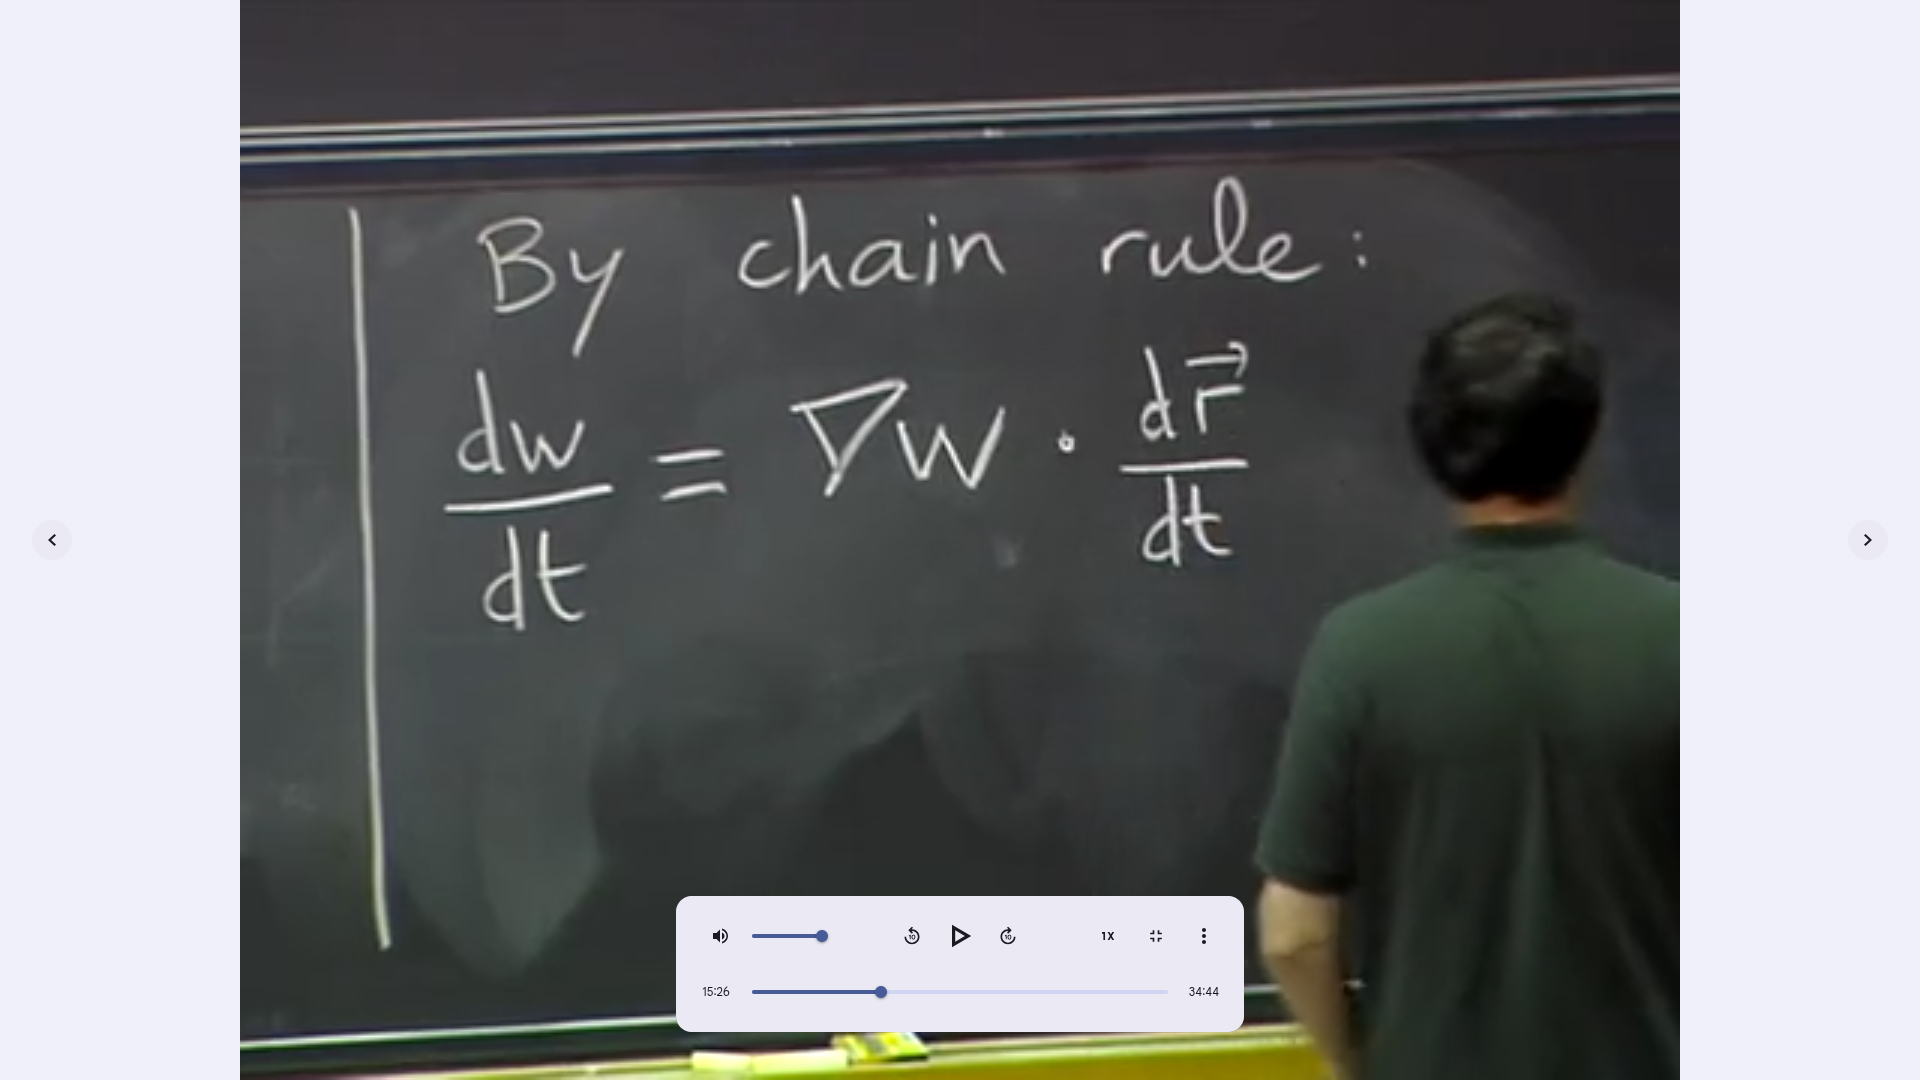 By chain rule:
dw/dt = ∇w · dr⃗/dt
1X
15:26
34:44